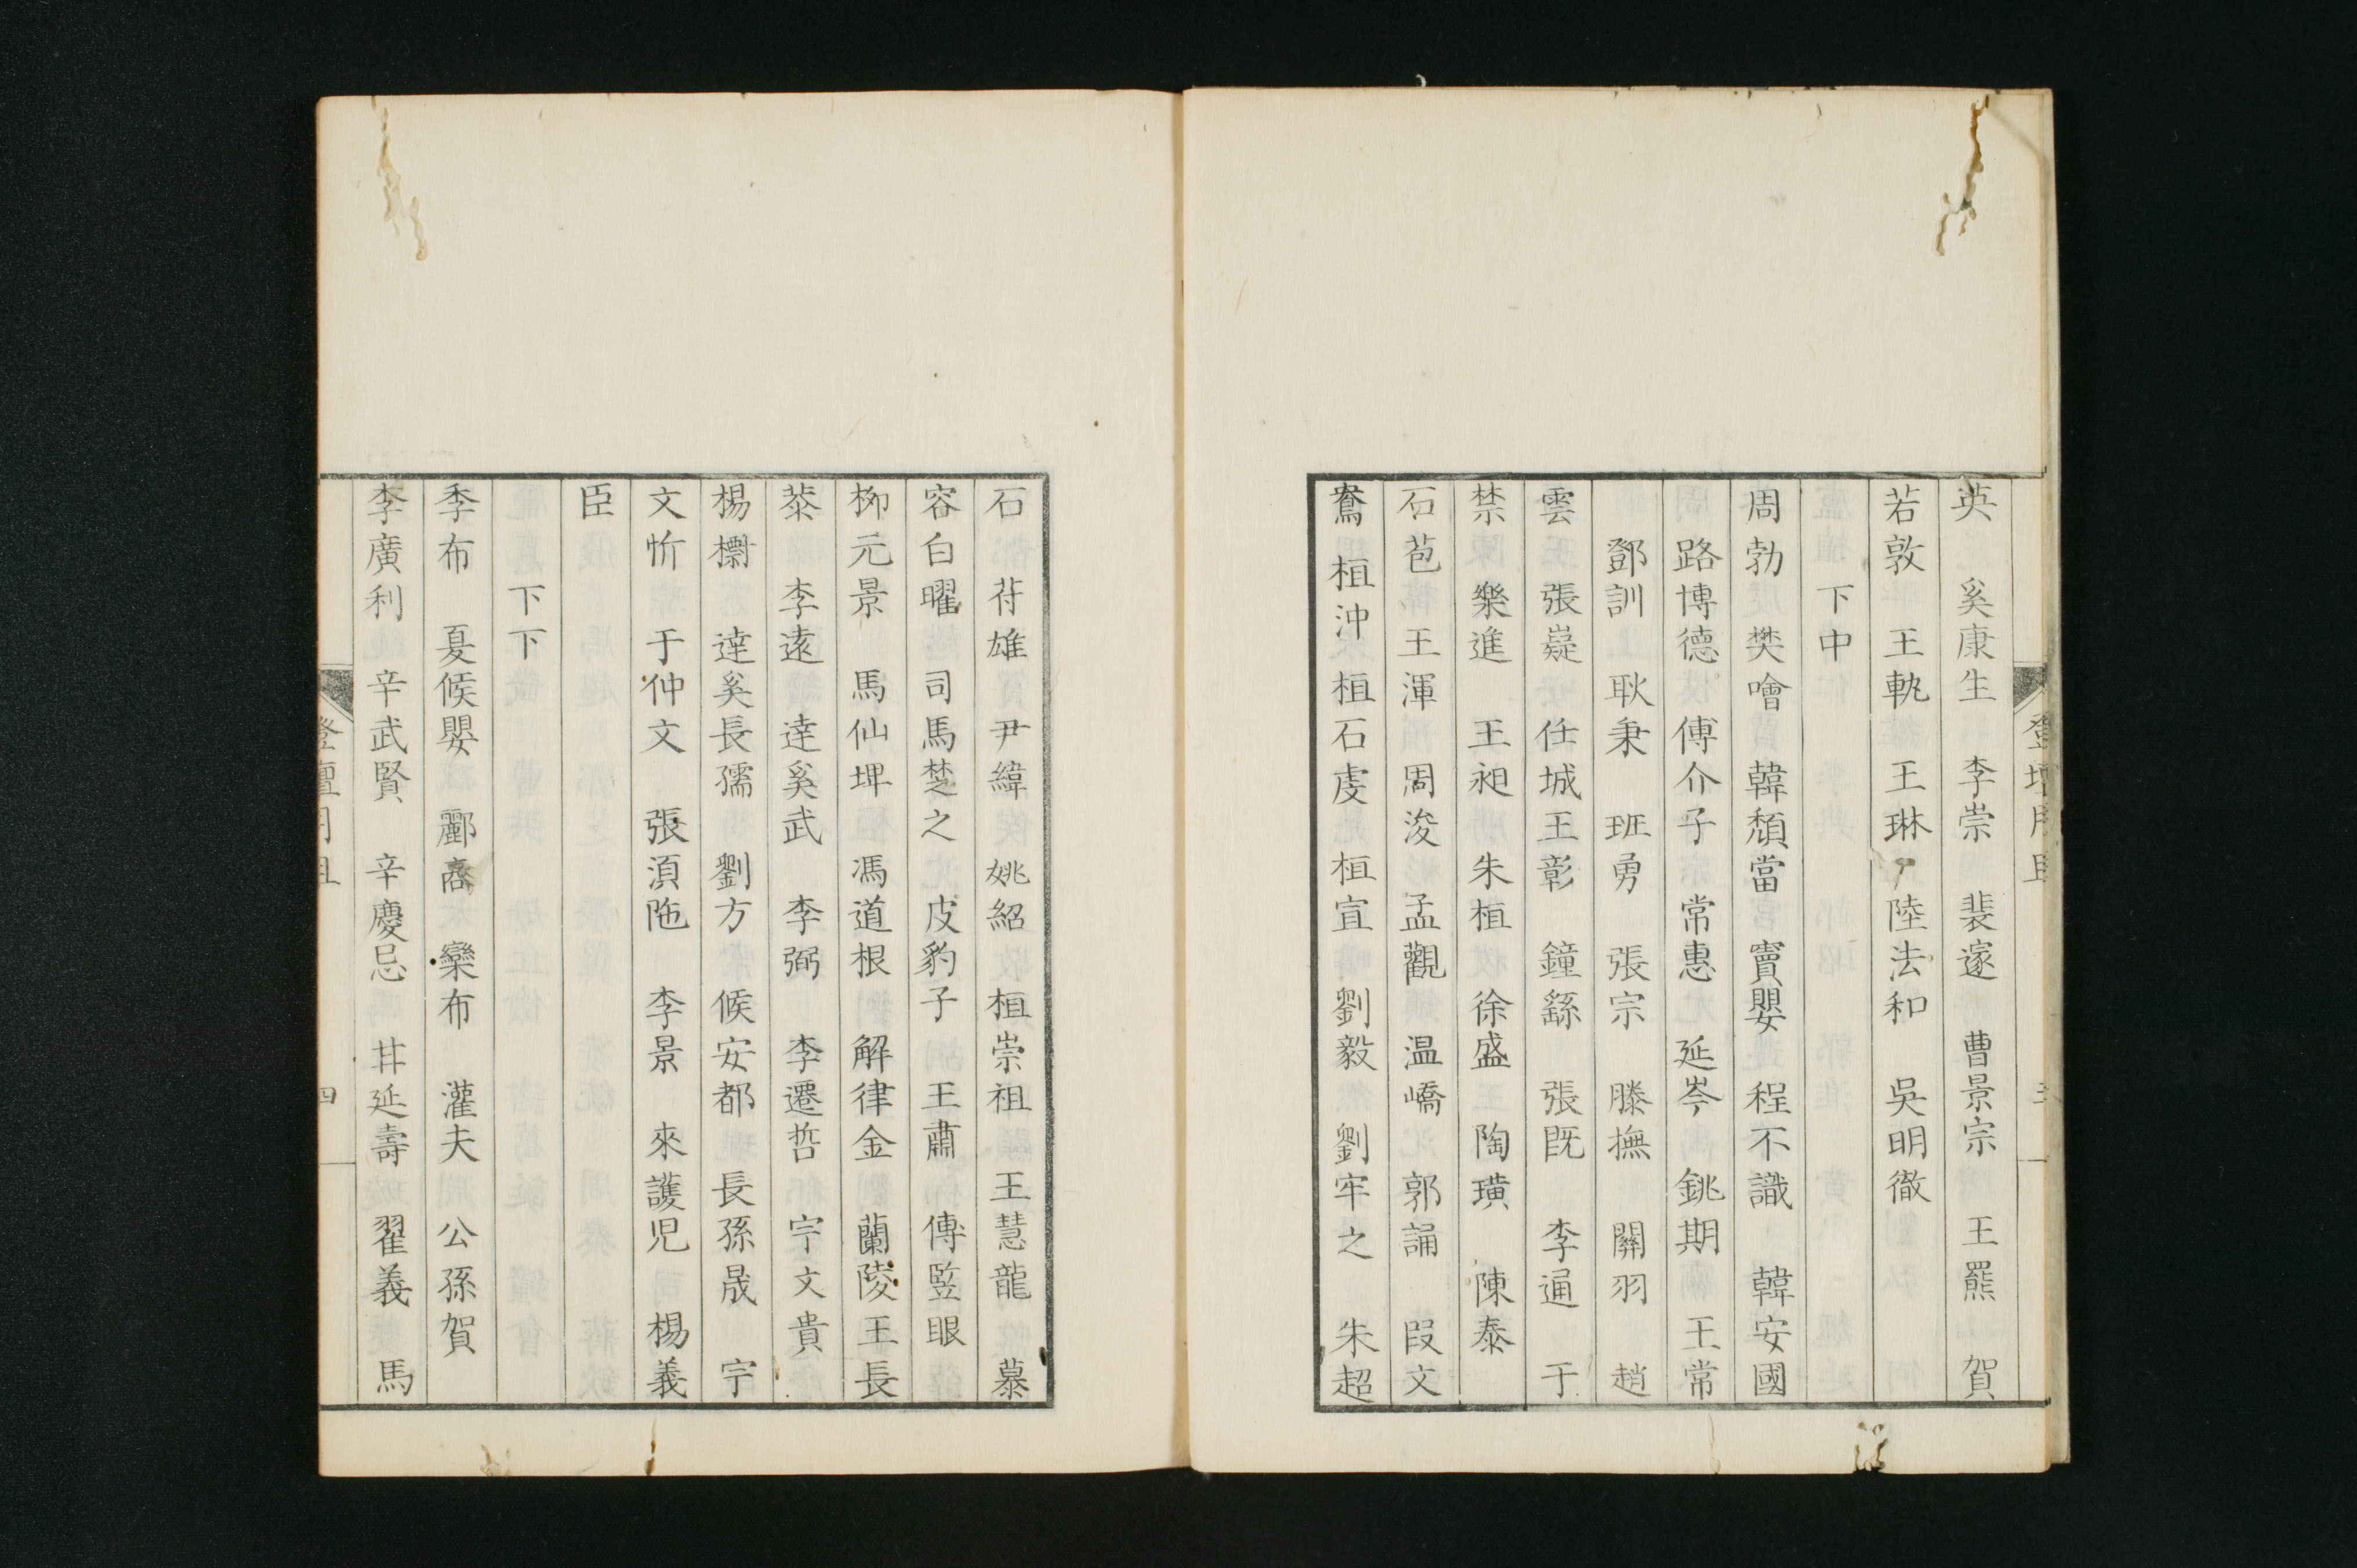 英 奚康生 李崇 裴邃 曹景宗 王羆 賀
若敦 王軌 王琳 陸法和 吳明徹
下中
周勃 樊噲 韓頹當 竇嬰 程不識 韓安國
路博德 傅介子 常惠 延岑 銚期 王常
鄧訓 耿秉 班勇 張宗 滕撫 關羽 趙
雲 張嶷 任城王彰 鐘繇 張既 李通 于
禁 樂進 王昶 朱桓 徐盛 陶璜 陳泰
石苞 王渾 周浚 孟觀 温嶠 郭誦 叚文
鴦 桓沖 桓石虔 桓宣 劉毅 劉牢之 朱超
石 苻雄 尹緯 姚紹 桓崇祖 王慧龍 慕
容白曜 司馬楚之 皮豹子 王肅 傅竪眼
栁元景 馬仙埤 馮道根 解律金 蘭陵王長
恭 李遠 達奚武 李弼 李遷哲 宇文貴
楊檦 達奚長孺 劉方 候安都 長孫晟 宇
文忻 于仲文 張湏陁 李景 來護児 楊義
臣
下下
季布 夏候嬰 酈商 欒布 灌夫 公孫賀
李廣利 辛武賢 辛慶忌 甘延壽 翟義 馬
四